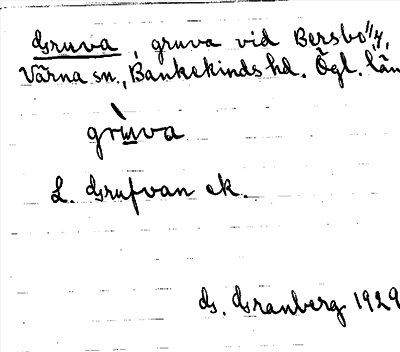 Gruva, gruva vid Bersbo 1/4,
Värna sn., Bankekinds hd. Ögl. län
grùva
L. Grufvan ek.
G. Granberg 1929